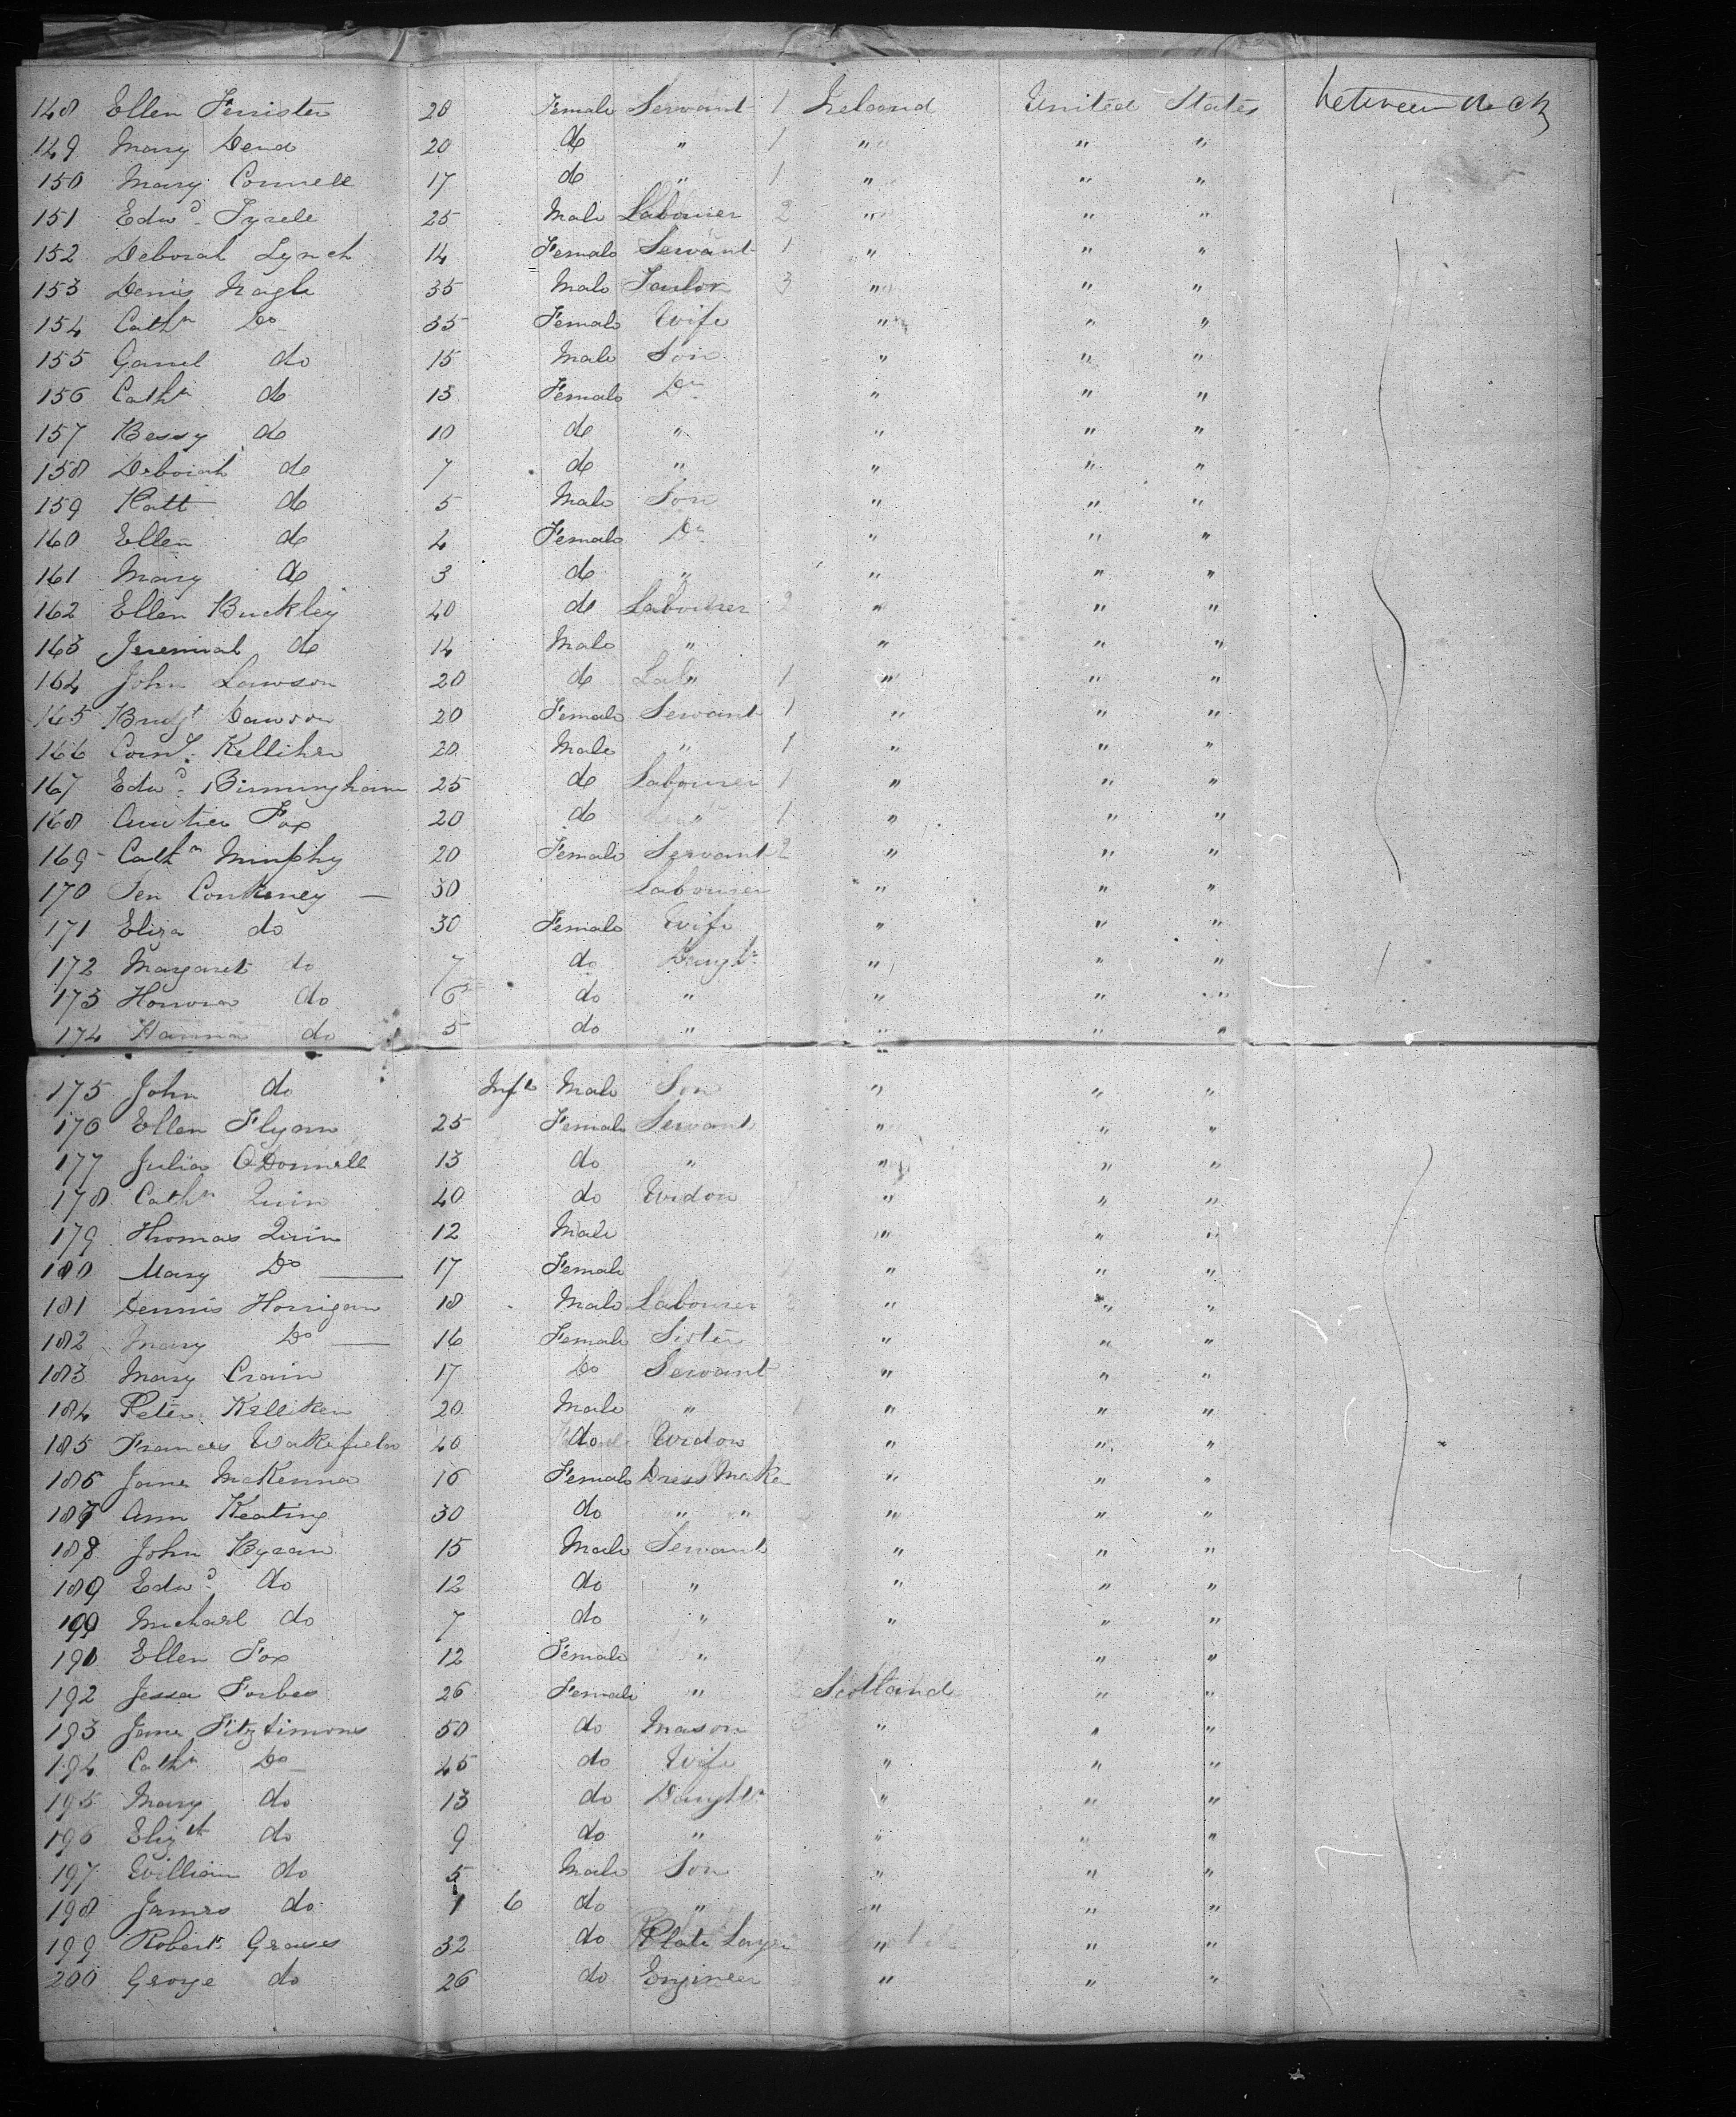 148 Ellen Ferrister 20 Female Servant 1 Ireland United States between deck
149 Mary Dend 20 do " 1 " " "
150 Mary Connell 17 do " 1 " " "
151 Edwd. Tyrele 25 Male Labourer 2 " " "
152 Deborah Lynch 14 Female Servant 1 " " "
153 Denis Nagle 35 Male Tailor 3 " " "
154 Cathn Do 35 Female Wife " " "
155 do 15 Male Son " " "
156 Cathn do 13 Female Dr " " "
157 Bessy do 10 do " " " "
158 Deborah do 7 do " " " "
159 Patt do 5 Male Son " " "
160 Ellen do 4 Female Dr " " "
161 Mary do 3 do " " " "
162 Ellen Buckley 40 do Labourer 2 " " "
163 Jeremiah do 14 Male " " " "
164 John Lawson 20 do Lab " 1 " " "
165 Bridgt Dawson 20 Female Servant 1 " " "
166 Cornl. Kelliher 20 Male " 1 " " "
167 Edwd. Birmingham 25 do Labourer 1 " " "
168 Fox 20 do " 1 " " "
169 Cathn Murphy 20 Female Servant 2 " " "
170 Conkeney — 30 Labourer " " "
171 Eliza do 30 Female Wife " " "
172 Margaret do 7 do Daughtr " " "
173 Honora do 6 do " " " "
174 Hanna do 5 do " " " "
175 John do Inft Male Son " " "
176 Ellen Flyann 25 Female Servant " " "
177 Julia O'Donnell 13 do " " " "
178 Cathn Quin 40 do Widow " " "
179 Thomas Quin 12 Male " " "
180 Mary Do — 17 Female " " "
181 Dennis Horrigan 18 Male Labourer 2 " " "
182 Mary Do — 16 Female Sister " " "
183 Mary Crain 17 Do Servant " " "
184 Peter Kelliken 20 Male " 1 " " "
185 Frances Wakefield 40 do Widow " " "
186 Jane McKenna 16 Female Dress Maker " " "
187 Ann Keating 30 do " " " " "
188 John Byran 15 Male Servant " " "
189 Edwd. do 12 do " " " "
190 Michael do 7 do " " " "
191 Ellen Fox 12 Female " " " "
192 Jessa Forbes 26 Female " Scotland " "
193 Jane Fitzsimons 50 do Mason " " "
194 Cathn Do 45 do Wife " " "
195 Mary do 13 do Daughtr " " "
196 Elizth do 9 do " " " "
197 William do 5 Male Son " " "
198 James do 1 6 do " " " "
199 Robert Graves 32 do Plate Layer " " "
200 George do 26 do Engineer " " "